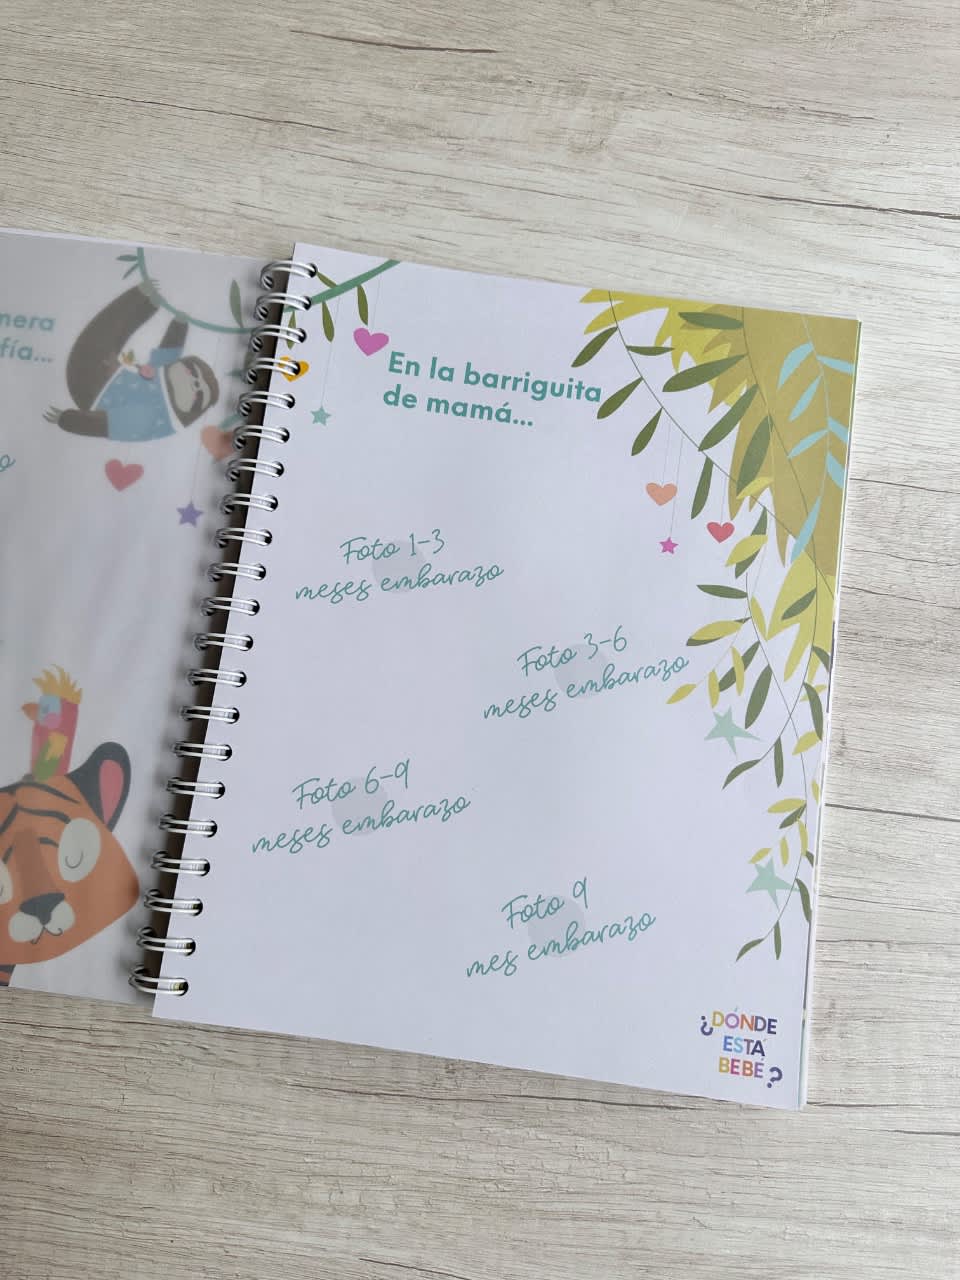 En la barriguita
de mamá...
Foto 1-3
meses embarazo
Foto 3-6
meses embarazo
Foto 6-9
meses embarazo
Foto 9
mes embarazo
¿DÓNDE
ESTÁ
BEBÉ?